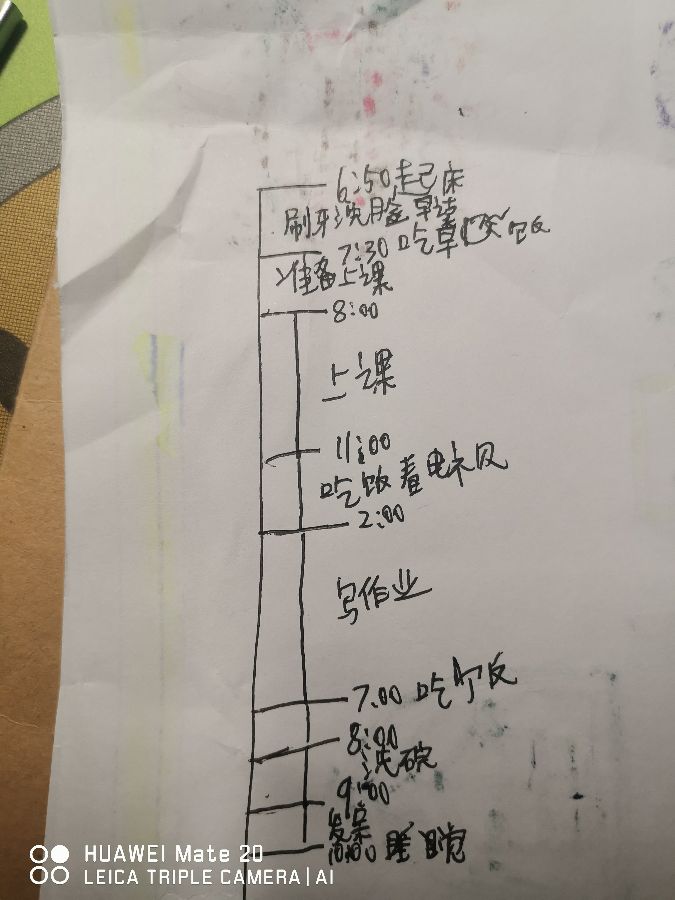 6:50起床
刷牙洗脸早读
7:30 吃早饭
准备上课
8:00
上课
11:00
吃饭看电视
2:00
写作业
7:00 吃饭
8:00
洗碗
9:00
发呆
10:00 睡觉
HUAWEI Mate 20
LEICA TRIPLE CAMERA | AI